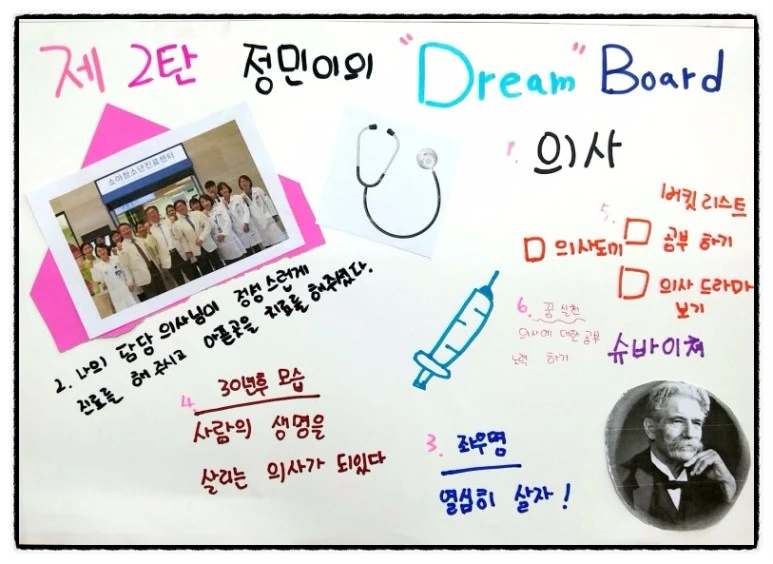 제 2탄 정민이의 "Dream" Board
소아청소년진료센터
1. 의사
2. 나의 담당 의사님이 정성스런게
진료를 해 주시고 아픈곳을 치료를 해주셨다.
3. 좌우명
열심히 살자!
4. 30년후 모습
사람의 생명을
살리는 의사가 되있다
5. 버킷리스트
의사되기
공부 하기
의사 드라마
보기
6. 꿈 실천
의사에 대한 공부
노력 하기
슈바이쳐